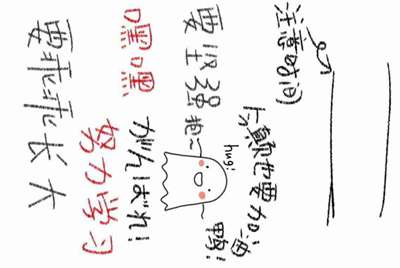 注意时间
也要加油鸭!
hug!
要坚强
抱~
がんばれ!
嘿嘿
努力学习
要乖乖长大